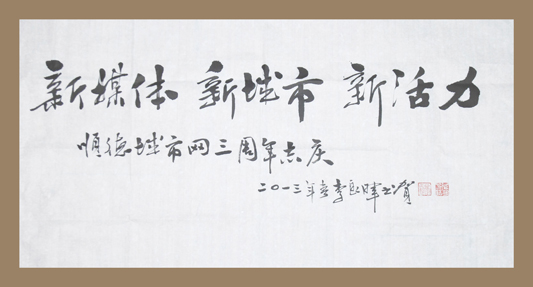 新媒体 新城市 新活力
顺德城市网三周年志庆
二〇一三年